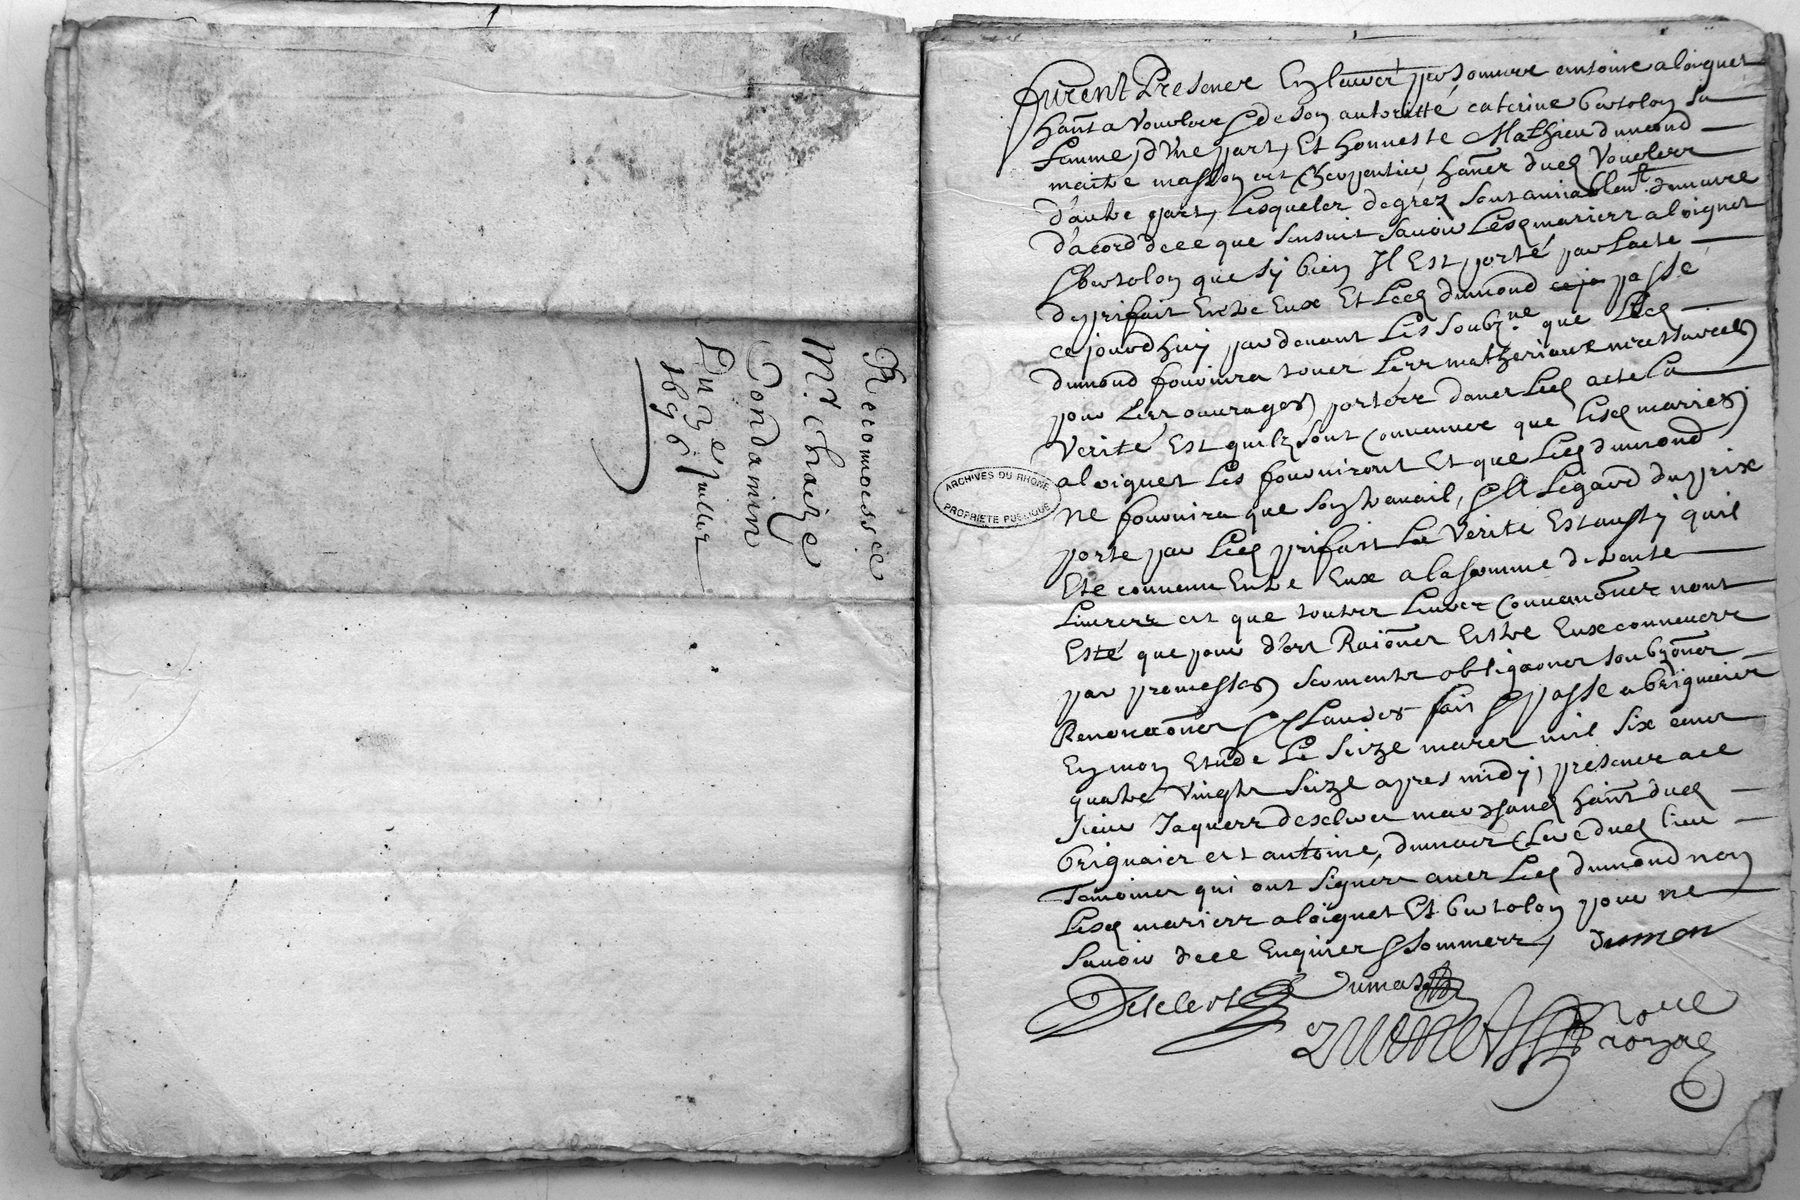 Reconnoissce
Mr. Chaize
Condamin
Du 2e Juillet
1696
ARCHIVES DU RHONE
PROPRIÉTÉ PUBLIQUE
furent Presens En leurs personnes antoine aloignet
hant a Vourles & de son autoritté caterine bertolon sa
femme, d'Une part, Et honneste Mathieu dumond
maitre masson et Charpentier hanter dud Vourles
d'autre part, Lesquels de grez sont amiablent demeures
d'acord de ce que sensuit savoir Lesd maries aloignet
& bertolon que sy bien Il Est porté par Lacte
de prifait Entre Eux Et Led dumond passé
ce jourdhuy par devant Les soubzne que Led
dumond fournira tous Les matheriaux necessaires
pour Les ouvrages portés dans Led acte La
Verité Est quilz sont convenus que Lesd maries
aloignet Les fourniront Et que Led dumond
ne fournira que son travail, & a Legard du prix
porté par Led prifait La Verité Est aussy quil
Eté convenu Entre Eux a la somme de trente
Livres et que toutes Leurs convenōns nont
Esté que pour d'ors Raiōns Entre Eux connues
par promesses sermentz obligaōns soubzōns
Renonciaōns & Clauses fait & passé a brignais
En mon Etude Le seize mars mil six cens
quatre Vingtz seize apres midy, presens a ce
sieur Jaques desclers marchand hant dud
brignais et antoine dumas Clerc dud lieu
Temoins qui ont signes avec Led dumond non
Lesd maries aloignet Et bertolon pour ne
savoir de ce Enquis & sommes, dumon
Desclers Dumas
Noue
Royal